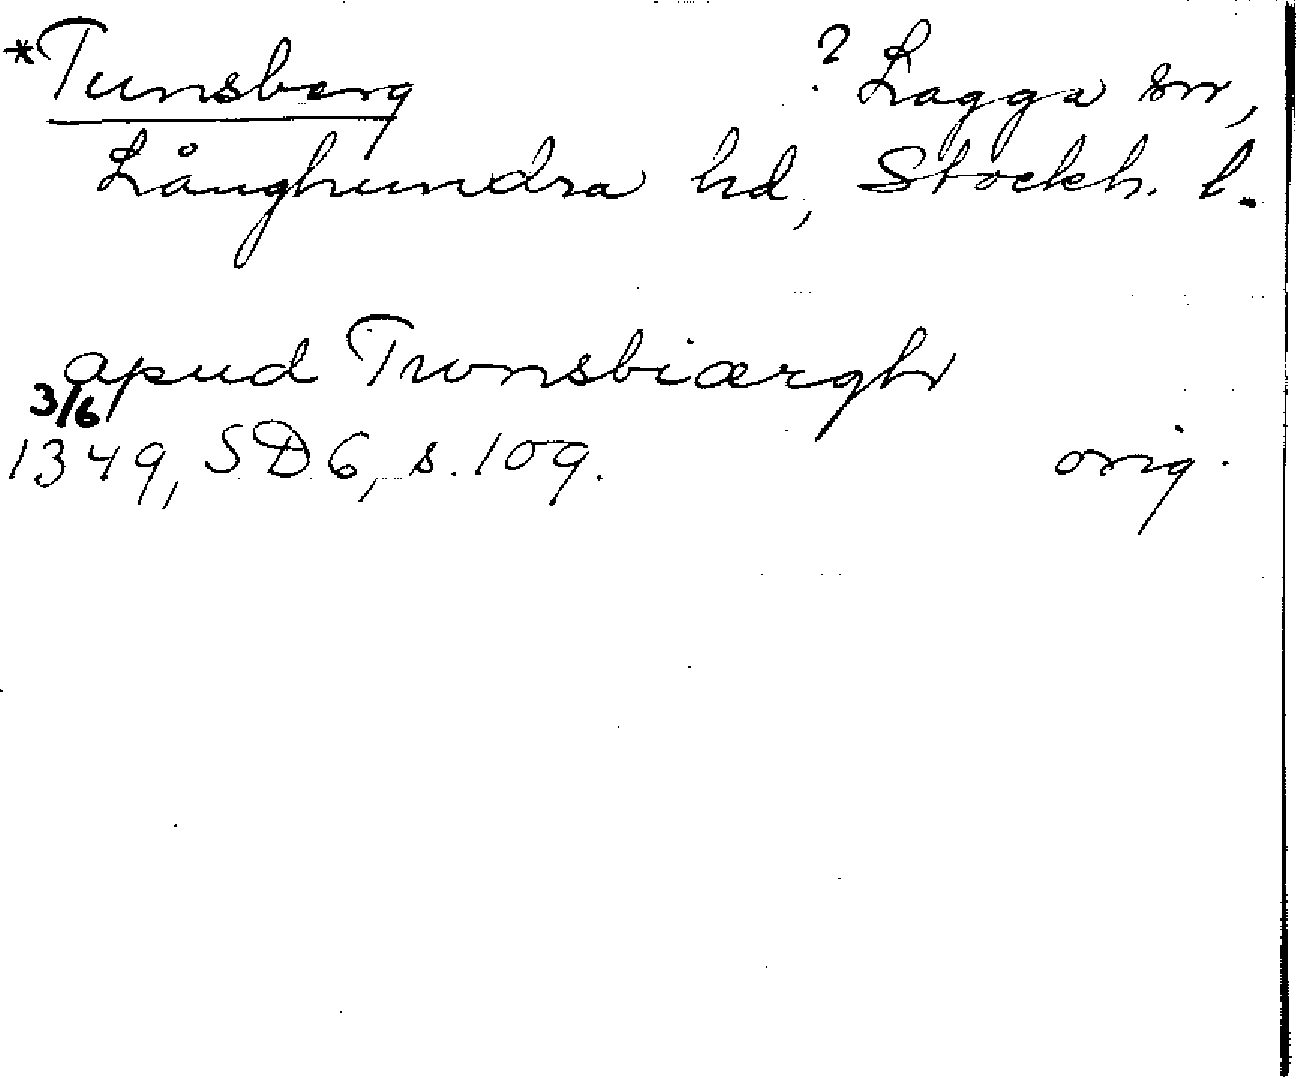 *Tunsberg ? Lagga sn,
Långhundra hd, Stockh. l.
apud Twnsbiærgh
3/6
1349, SD 6, s. 109. orig.